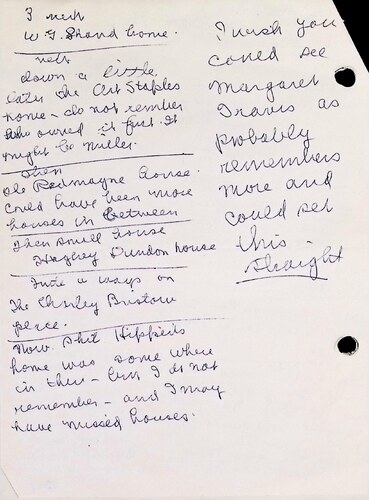 3 mich
W. G. Shand home.
next
down a little
later the Art Staples
home - do not remember
who owned it first. It
might be Miller.
Then
Old Redmayne house.
Could have been more
houses in between
Then small house
Hughey Dundon house
Quite a ways on
The Charley Bristow
place.
Now Phil Hipperls
home was some where
in ther - but I do not
remember - and I may
have missed houses.
I wish you
could see
Margaret
Travis as
probably
remembers
more and
could set
this -
straight